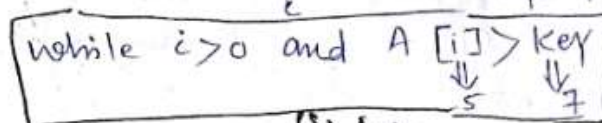 while i>0 and A [i] > key
⇓ ⇓
5 7